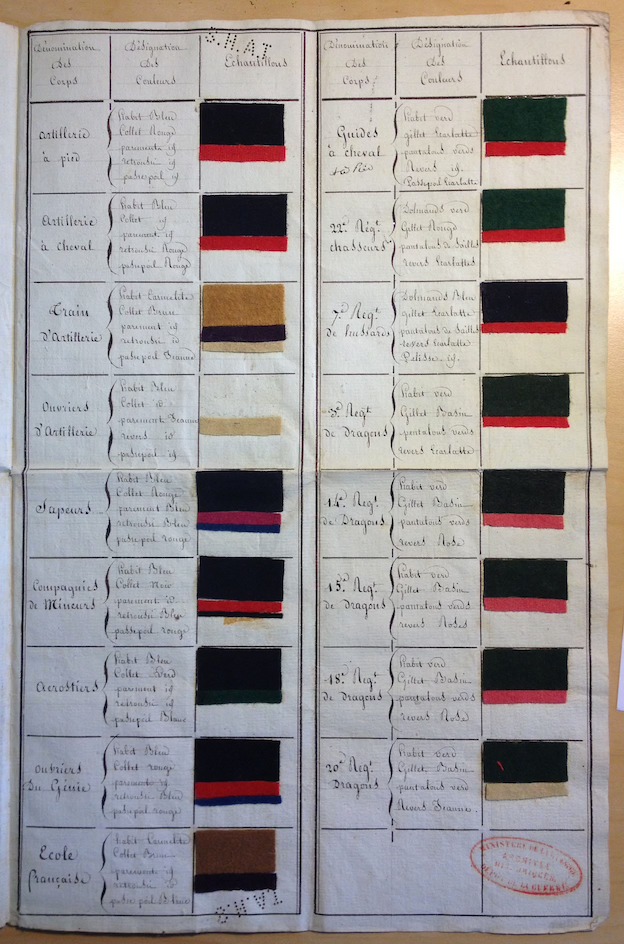 S.H.A.T
Dénomination
Des
Corps
Désignation
Des
Couleurs
Echantillons
artillerie
à pied
habit Bleu
Collet Rouge
parements id
retroussis id
passepoil id
Artillerie
à cheval
habit Bleu
Collet id
parement id
retroussis Rouge
passepoil Rouge
Train
d'Artillerie
habit Carmelite
Collet Brun
parement id
retroussis id
passepoil Jeaune
Ouvriers
d'Artillerie
habit Bleu
Collet id
parements Jeaune
revers id
passepoil id
Sapeurs
habit Bleu
Collet Rouge
parement Bleu
retroussis Bleu
passepoil rouge
Compagnies
de Mineurs
habit Bleu
Collet Noir
parement id
retroussis Bleu
passepoil rouge
Aerostiers
habit Bleu
Collet Verd
parement id
retroussis id
passepoil Blanc
ouvriers
Du Génie
habit Bleu
Collet rouge
parements id
retroussis Bleu
passepoil rouge
Ecole
française
habit Carmelite
Collet Brun
parement id
retroussis id
passepoil Bleue
Dénomination
Des
Corps
Désignation
Des
Couleurs
Echantillons
Guides
à cheval
habit verd
gillet Ecarlatte
pantalons verds
Revers id
Passepoil Ecarlatte
22e Régt
chasseurs
Dolmands verd
Gillet Rouge
pantalons de
revers Ecarlattes
7e Regt
de hussards
Dolmands Bleu
gillet Ecarlatte
pantalons de
revers Ecarlatte
Pelisse id
3e Regt
de dragons
habit verd
Gillet Basin
pantalons verds
revers Ecarlatte
14e Regt
de Dragons
habit verd
Gillet Basin
pantalons verds
revers Rose
15e Regt
de dragons
habit verd
Gillet Basin
pantalons verds
revers Roses
18e Regt
de dragons
habit verd
Gillet Basin
pantalons verds
revers Rose
20e Regt
Dragons
habit verd
Gillet Basin
pantalons verd
Revers Jeaune
MINISTERE DE LA GUERRE
ARCHIVES
HISTORIQUES
DEPOT DE LA GUERRE
S.H.A.T